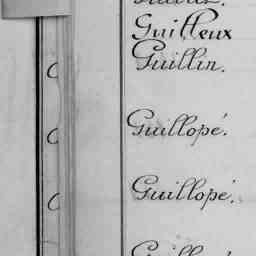 Guilleux
Guillin.
Guillopé.
Guillopé.